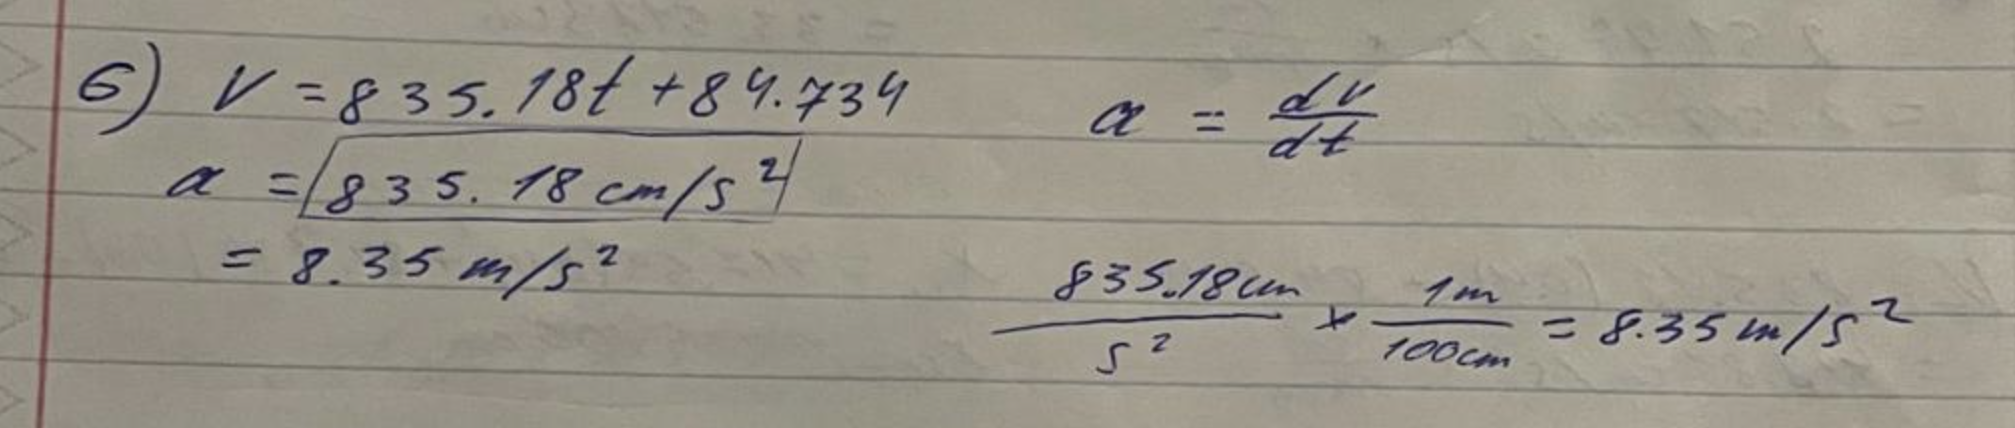 6) V = 835.18t + 84.734
a = dv/dt
a = 835.18 cm/s²
= 8.35 m/s²
835.18cm/s² × 1m/100cm = 8.35 m/s²